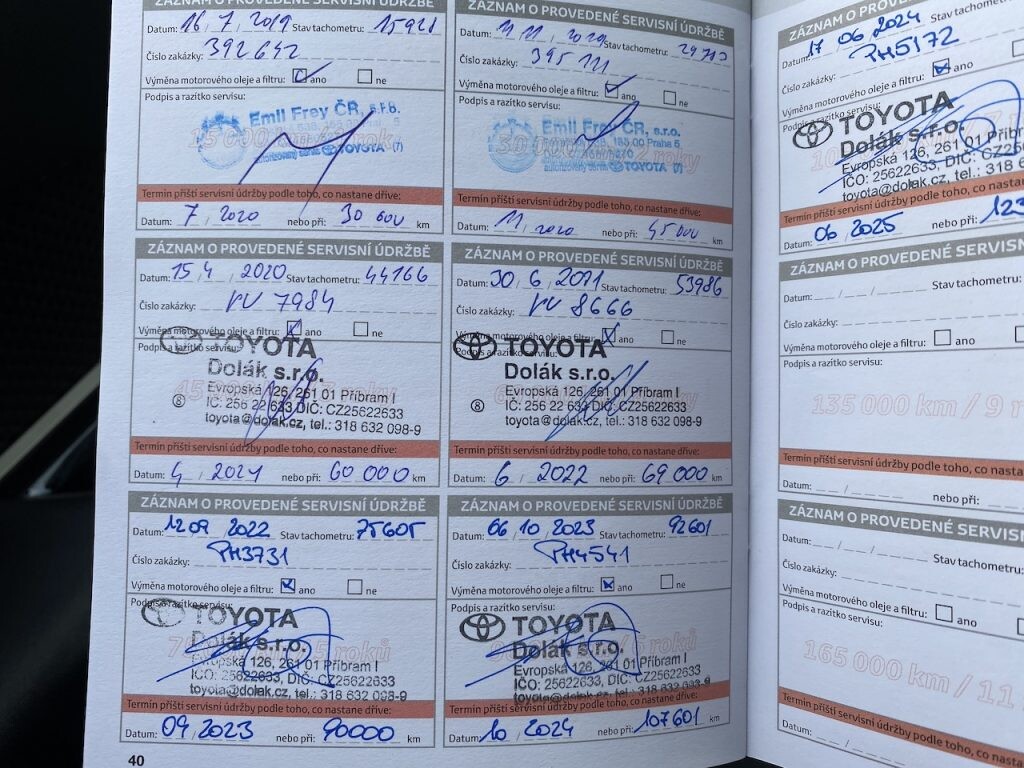 ZÁZNAM O PROVEDENÉ SERVISNÍ ÚDRŽBĚ
Datum: 16 / 7 / 2019 Stav tachometru: 15921
Číslo zakázky: 392642
Výměna motorového oleje a filtru: ano ne
Podpis a razítko servisu:
Emil Frey ČR, s.r.o.
15 000 km / roky
autorizovaný servis TOYOTA (7)
Termín příští servisní údržby podle toho, co nastane dříve:
Datum: 7 / 2020 nebo při: 30 000 km
ZÁZNAM O PROVEDENÉ SERVISNÍ ÚDRŽBĚ
Datum: 11 / 11 / Stav tachometru:
Číslo zakázky: 395 111
Výměna motorového oleje a filtru: ano ne
Podpis a razítko servisu:
Emil Frey ČR, s.r.o.
Praha 5
30 000 roky
autorizovaný servis TOYOTA (7)
Termín příští servisní údržby podle toho, co nastane dříve:
Datum: 11 / 2020 nebo při: 45 000 km
ZÁZNAM O PROVEDENÉ SERVISNÍ ÚDRŽBĚ
Datum: 15 / 4 / 2020 Stav tachometru: 44166
Číslo zakázky: VV 7984
Výměna motorového oleje a filtru: ano ne
Podpis a razítko servisu:
TOYOTA
Dolák s.r.o.
Evropská 126, 261 01 Příbram I
IČ: 256 22 633, DIČ: CZ25622633
8
toyota@dolak.cz, tel.: 318 632 098-9
roky
Termín příští servisní údržby podle toho, co nastane dříve:
Datum: 4 / 2021 nebo při: 60 000 km
ZÁZNAM O PROVEDENÉ SERVISNÍ ÚDRŽBĚ
Datum: 30 / 6 / 2021 Stav tachometru: 53986
Číslo zakázky: VV 8666
Výměna motorového oleje a filtru: ano ne
Podpis a razítko servisu:
TOYOTA
Dolák s.r.o.
Evropská 126, 261 01 Příbram I
IČ: 256 22 633, DIČ: CZ25622633
8
toyota@dolak.cz, tel.: 318 632 098-9
Termín příští servisní údržby podle toho, co nastane dříve:
Datum: 6 / 2022 nebo při: 69 000 km
ZÁZNAM O PROVEDENÉ SERVISNÍ ÚDRŽBĚ
Datum: 12 09 2022 Stav tachometru: 75605
Číslo zakázky: PH3731
Výměna motorového oleje a filtru: ano ne
Podpis a razítko servisu:
TOYOTA
Dolák s.r.o.
Evropská 126, 261 01 Příbram I
IČO: 25622633, DIČ: CZ25622633
toyota@dolak.cz, tel.: 318 632 098-9
roků
Termín příští servisní údržby podle toho, co nastane dříve:
Datum: 09 / 2023 nebo při: 90000 km
ZÁZNAM O PROVEDENÉ SERVISNÍ ÚDRŽBĚ
Datum: 06 10 2023 Stav tachometru: 92601
Číslo zakázky: PH4541
Výměna motorového oleje a filtru: ano ne
Podpis a razítko servisu:
TOYOTA
Dolák s.r.o.
Evropská 126, 261 01 Příbram I
IČO: 25622633, DIČ: CZ25622633
toyota@dolak.cz, tel.: 318 632 098-9
roků
Termín příští servisní údržby podle toho, co nastane dříve:
Datum: 10 / 2024 nebo při: 107601 km
40
ZÁZNAM O PROVEDENÉ SERVISN
Datum: 17 06 2024 Stav tachometru:
Číslo zakázky: PH5172
Výměna motorového oleje a filtru: ano
Podpis a razítko servisu:
TOYOTA
Dolák s.r.o.
Evropská 126, 261 01 Příbr
IČO: 25622633, DIČ: CZ256
toyota@dolak.cz, tel.: 318 6
Termín příští servisní údržby podle toho, co nasta
Datum: 06 / 2025 nebo při: 123
ZÁZNAM O PROVEDENÉ SERVISN
Datum: / / Stav tachometru:
Číslo zakázky:
Výměna motorového oleje a filtru: ano
Podpis a razítko servisu:
135 000 km / 9 r
Termín příští servisní údržby podle toho, co nasta
Datum: / nebo při:
ZÁZNAM O PROVEDENÉ SERVISN
Datum: / / Stav tachometru:
Číslo zakázky:
Výměna motorového oleje a filtru: ano
Podpis a razítko servisu:
165 000 km / 11
Termín příští servisní údržby podle toho, co nasta
Datum: / nebo při: